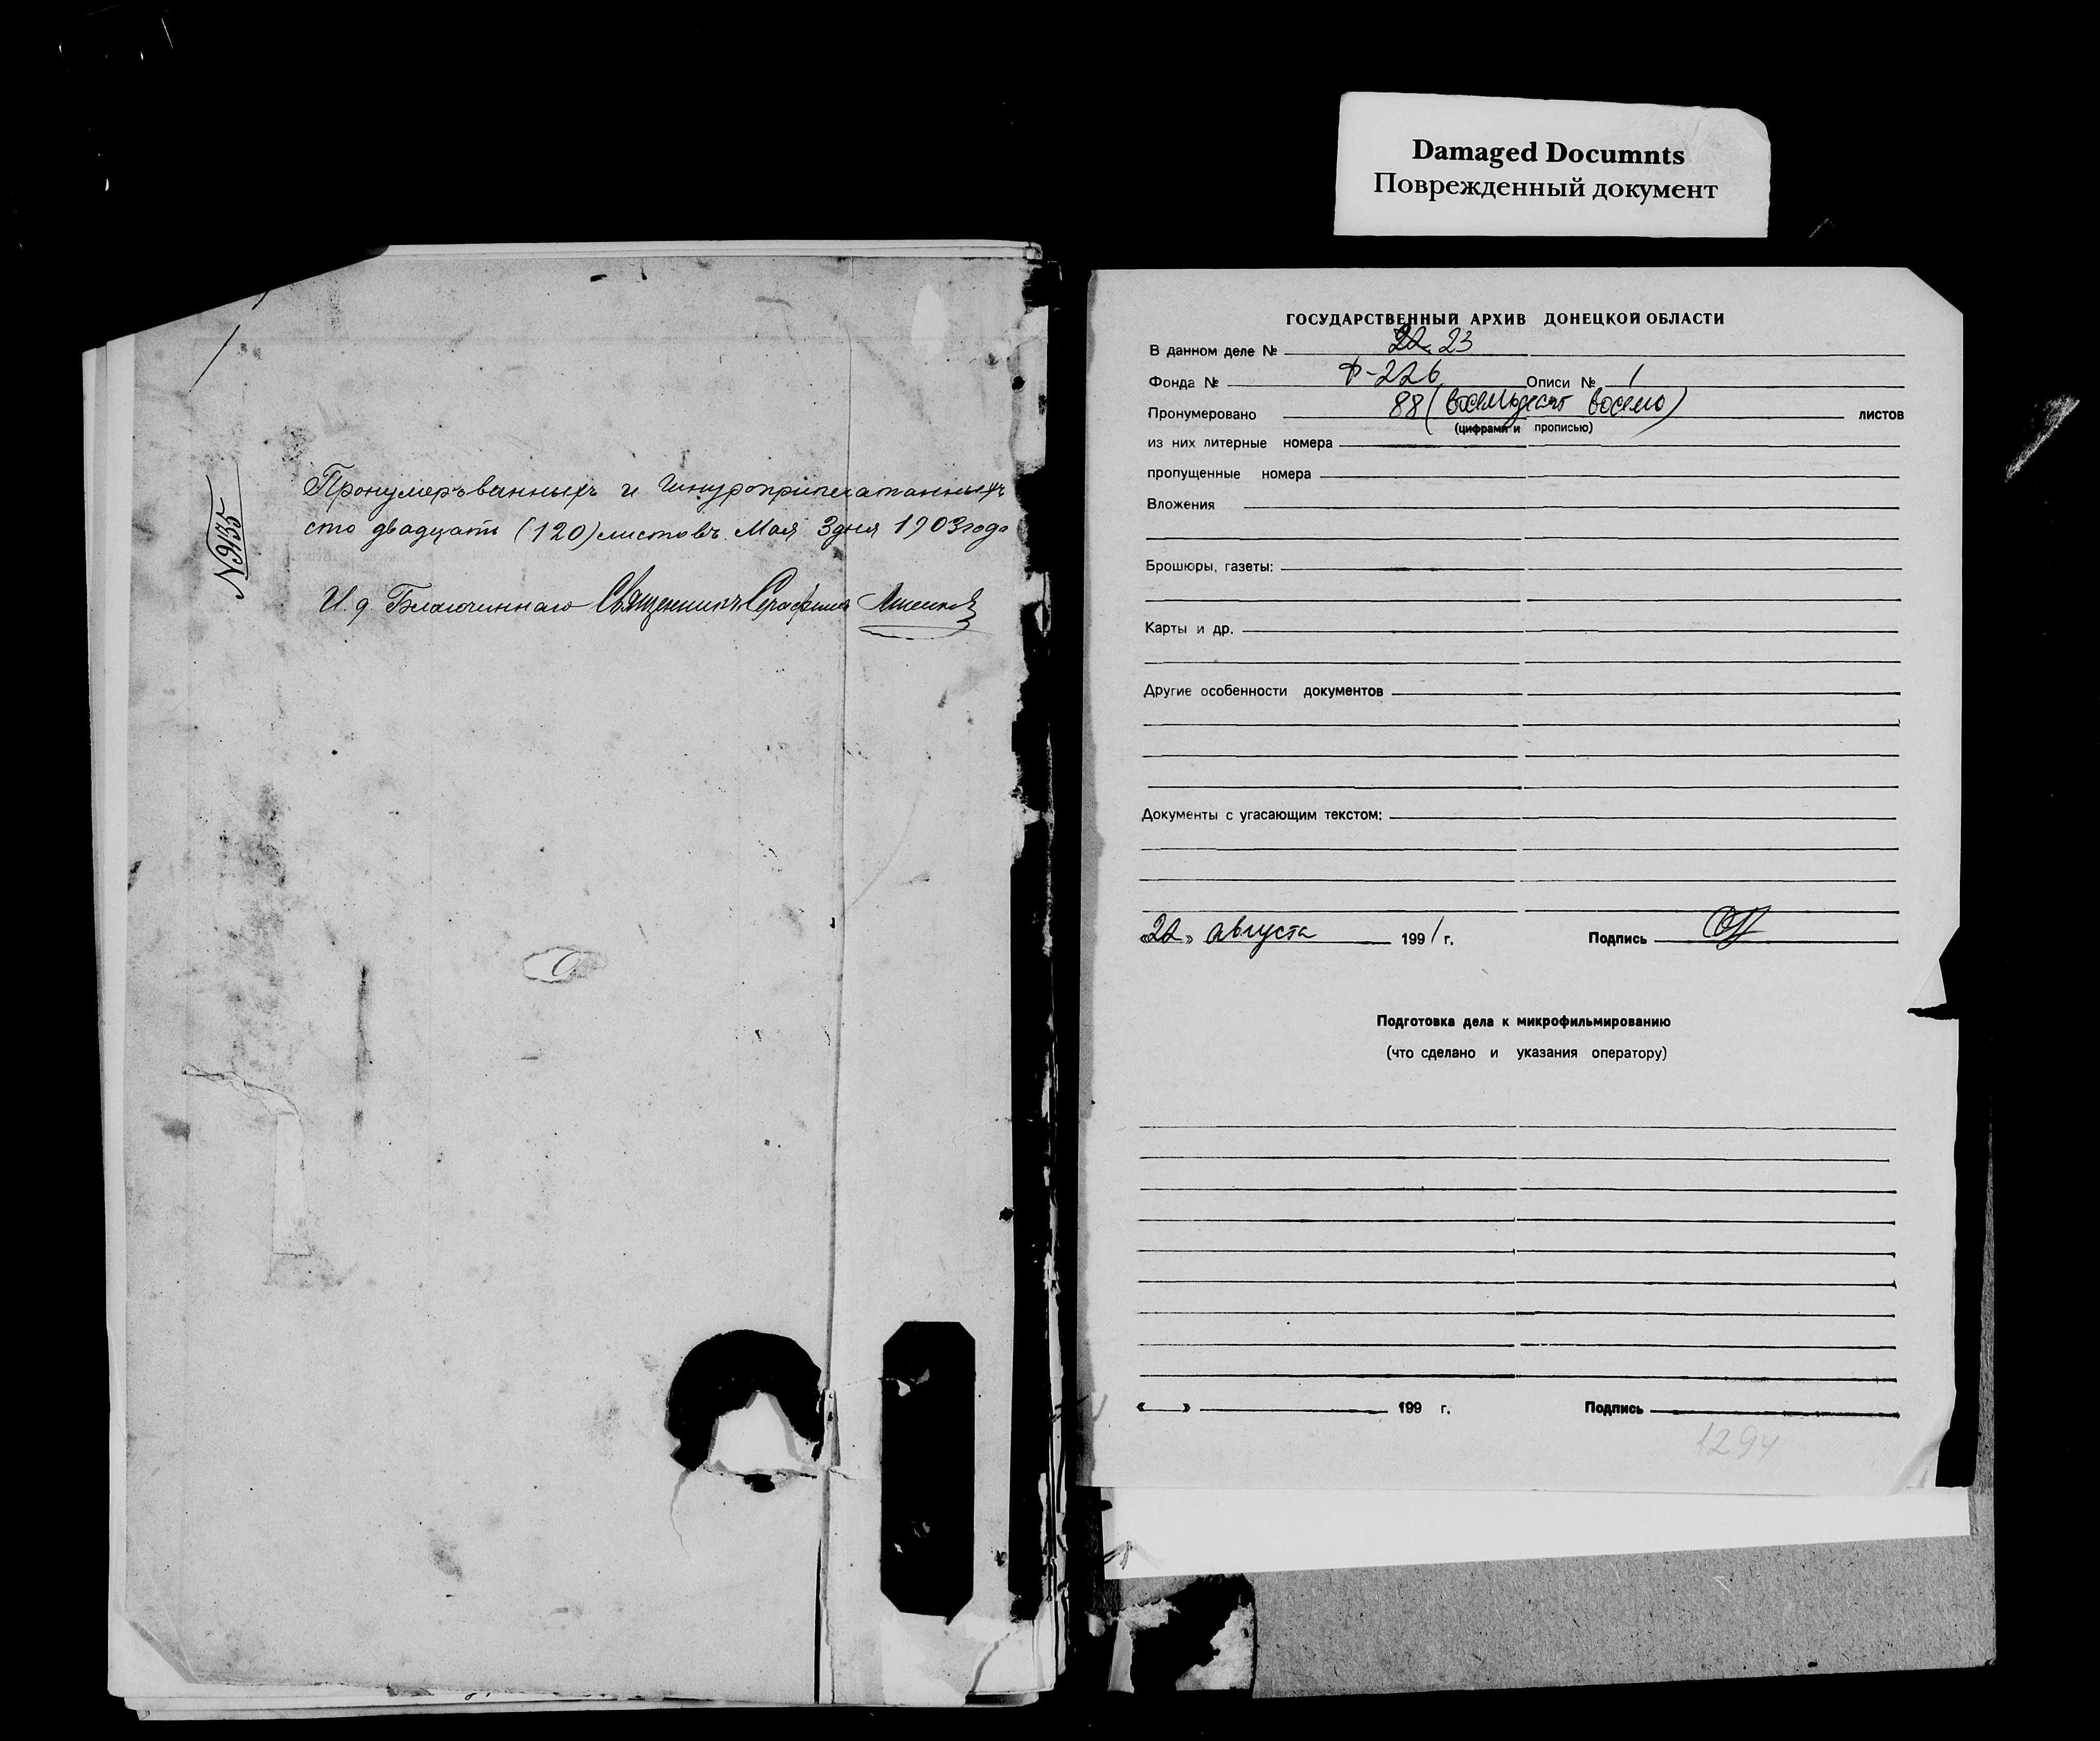 Damaged Documnts
Поврежденный документ
№ 9135
Пронумерованныхъ и шнуроприпечатанныхъ
сто двадцать (120) листовъ. Мая 3 дня 1903 года
И. д. Благочиннаго Священникъ Серафимъ
ГОСУДАРСТВЕННЫЙ АРХИВ ДОНЕЦКОЙ ОБЛАСТИ
В данном деле № 22 23
Фонда № Ф-226 Описи № 1
Пронумеровано 88 (восемьдесят восемь) листов
(цифрами и прописью)
из них литерные номера
пропущенные номера
Вложения
Брошюры, газеты:
Карты и др.
Другие особенности документов
Документы с угасающим текстом:
«22» августа 1991 г. Подпись
Подготовка дела к микрофильмированию
(что сделано и указания оператору)
« » 199 г. Подпись
1294